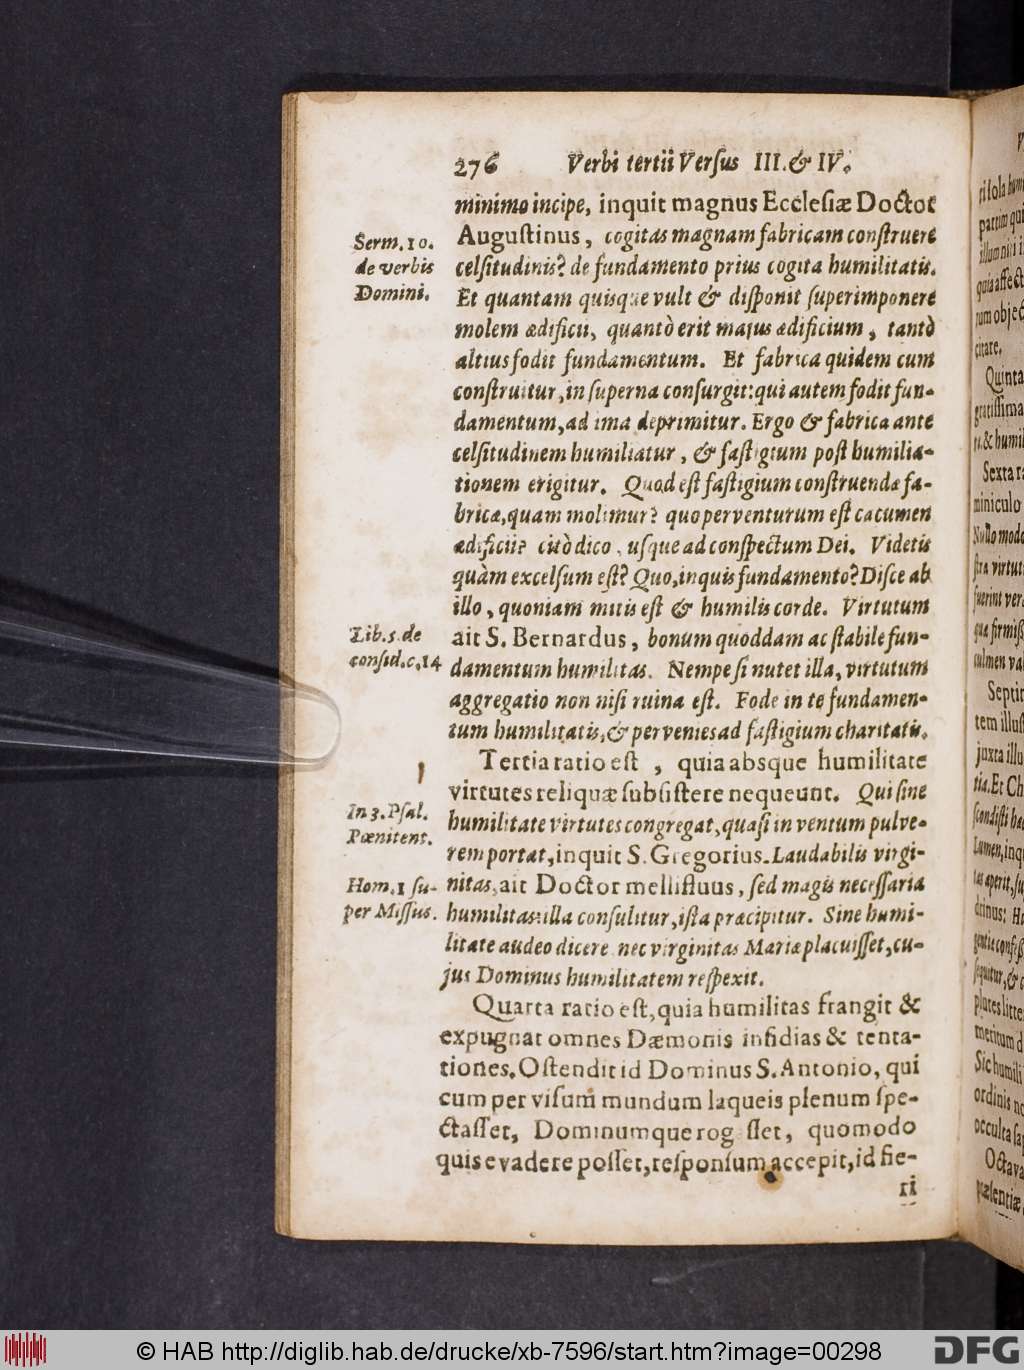 276 Verbi tertii Versus III. & IV.
minimo incipe, inquit magnus Ecclesiæ Doctor
Serm. 10. de verbis Domini.
Augustinus, cogitas magnam fabricam construere
celsitudinis? de fundamento prius cogita humilitatis.
Et quantam quisque vult & disponit superimponere
molem ædificii, quantò erit majus ædificium, tantò
altius fodit fundamentum. Et fabrica quidem cum
construitur, in superna consurgit: qui autem fodit fun-
damentum, ad ima deprimitur. Ergo & fabrica ante
celsitudinem humiliatur, & fastigium post humilia-
tionem erigitur. Quod est fastigium construendæ fa-
bricæ, quam molimur? quo perventurum est cacumen
ædificii? citò dico, usque ad conspectum Dei. Videtis
quàm excelsum est? Quo, inquis fundamento? Disce ab
illo, quoniam mitis est & humilis corde. Virtutum
Lib. 5. de consid. c. 14
ait S. Bernardus, bonum quoddam ac stabile fun-
damentum humilitas. Nempe si nutet illa, virtutum
aggregatio non nisi ruina est. Fode in te fundamen-
tum humilitatis, & pervenies ad fastigium charitatis.
Tertia ratio est, quia absque humilitate
virtutes reliquæ subsistere nequeunt. Qui sine
In 3. Psal. Pœnitent.
humilitate virtutes congregat, quasi in ventum pulve-
rem portat, inquit S. Gregorius. Laudabilis virgi-
Hom. 1 su-
per Missus.
nitas, ait Doctor mellifluus, sed magis necessaria
humilitas: illa consulitur, ista præcipitur. Sine humi-
litate audeo dicere nec virginitas Mariæ placuisset, cu-
jus Dominus humilitatem respexit.
Quarta ratio est, quia humilitas frangit &
expugnat omnes Dæmonis insidias & tenta-
tiones. Ostendit id Dominus S. Antonio, qui
cum per visum mundum laqueis plenum spe-
ctasset, Dominumque rog sset, quomodo
quis evadere posset, responsum accepit, id fie-
ri
© HAB http://diglib.hab.de/drucke/xb-7596/start.htm?image=00298
DFG